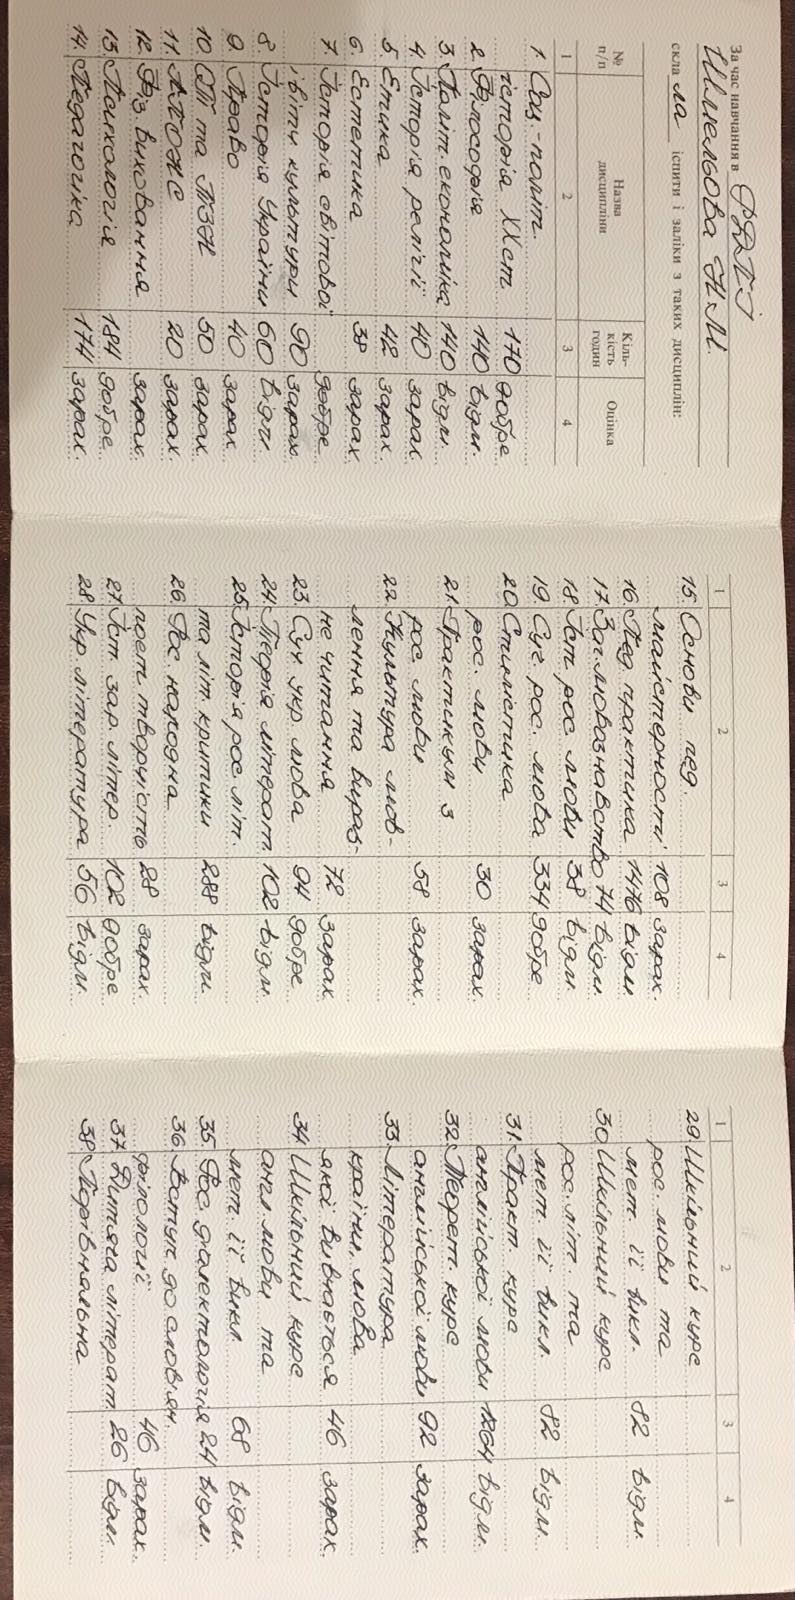 За час навчання в РДПІ
Шмельова Н.М.
скла ла іспити і заліки з таких дисциплін:
№ п/п Назва дисципліни Кіль-кість годин Оцінка
1 2 3 4
1. Соц.-політ.
історія XX ст. 170 добре
2. Філософія 140 відм.
3. Політ. економіка 140 відм.
4. Історія релігії 40 зарах.
5. Етика 42 зарах.
6. Естетика 38 зарах.
7. Історія світової добре
і вітч культури 90 зарах.
8. Історія України 60 відм.
9. Право 40 зарах
10. ОІТ та ТЗН 50 зарах.
11. 20 зарах.
12. Фіз. виховання зарах.
13. Психологія 184 добре
14. Педагогіка 174 зарах.
1 2 3 4
15. Основи пед.
майстерності 108 зарах.
16. Пед. практика 1476 відм.
17. Заг. мовознавство 74 відм.
18. Іст. рос. мови 38 відм.
19. Суч. рос. мова 334 добре
20. Стилистика
рос. мови 30 зарах.
21. Практикум з
рос. мови 58 зарах.
22. Культура мов-
лення та вираз-
не читання 72 зарах.
23. Суч. укр. мова 94 добре
24. Теорія літерат. 102 відм.
25. Історія рос. літ.
та літ. критики 288 відм.
26. Рос. народна
поет. творчість 28 зарах.
27. Іст. зар. літер. 102 добре
28. Укр. література 56 відм.
1 2 3 4
29. Шкільний курс
рос. мови та
мет. її викл. 82 відм.
30. Шкільний курс
рос. літ. та
мет. її викл. 82 відм.
31. Практ. курс
англійської мови 1264 відм.
32. Теорет. курс
англійської мови 92 зарах.
33. Література
країни, мова
якої вивчається 46 зарах.
34. Шкільний курс
англ. мови та
мет. її викл. 68 відм.
35. Рос. діалектологія 24 відм.
36. Вступ до слов'ян.
філології 46 зарах.
37. Дитяча літерат. 26 відм.
38. Порівняльна